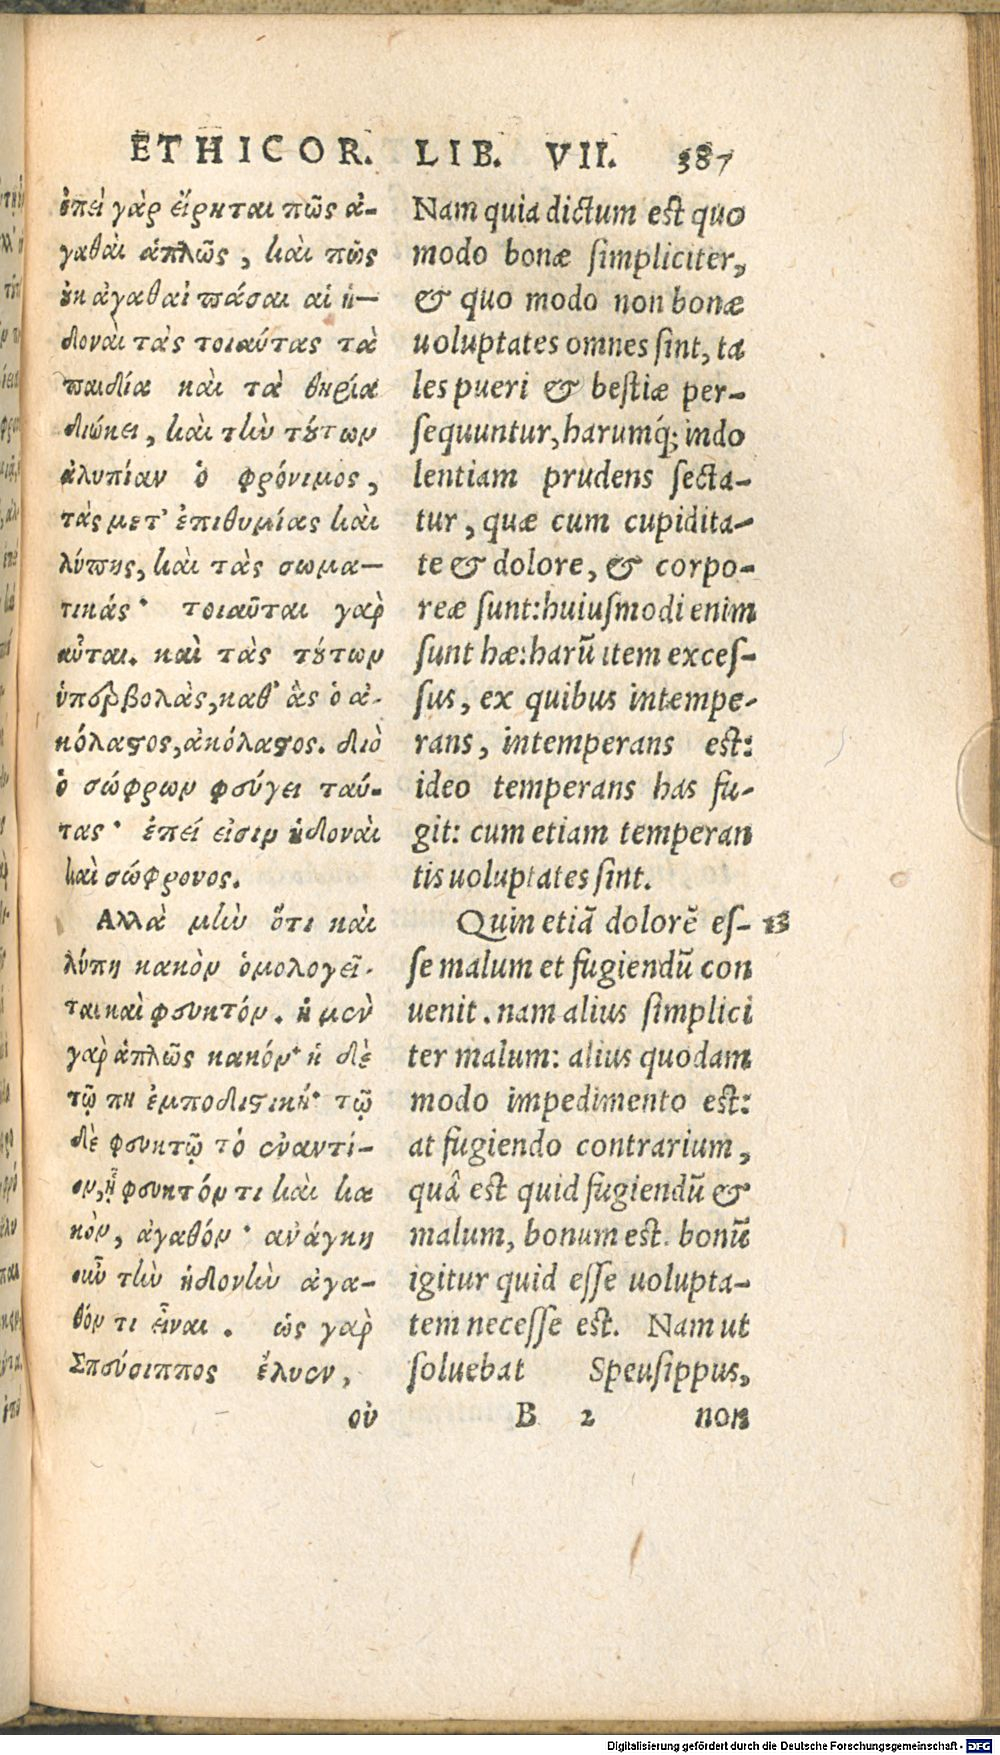 ETHICOR. LIB. VII. 387
ἐπεὶ γὰρ εἴρηται πῶς ἀ-
γαθαὶ ἁπλῶς, καὶ πῶς
οὐκ ἀγαθαὶ πᾶσαι αἱ ἡ-
δοναὶ τὰς τοιαύτας τὰ
παιδία καὶ τὰ θηρία
διώκει, καὶ τὴν τούτων
ἀλυπίαν ὁ φρόνιμος,
τὰς μετ' ἐπιθυμίας καὶ
λύπης, καὶ τὰς σωμα-
τικάς· τοιαῦται γὰρ
αὗται. καὶ τὰς τούτων
ὑπερβολὰς, καθ' ἃς ὁ ἀ-
κόλαστος, ἀκόλαστος. διὸ
ὁ σώφρων φεύγει ταύ-
τας· ἐπεί εἰσιν ἡδοναὶ
καὶ σώφρονος.
Αλλὰ μὴν ὅτι καὶ
λύπη κακὸν ὁμολογεῖ-
ται καὶ φευκτόν. ἡ μὲν
γὰρ ἁπλῶς κακόν· ἡ δὲ
τῷ πη ἐμποδιστική· τῷ
δὲ φευκτῷ τὸ ἐναντί-
ον, ᾗ φευκτόν τι καὶ κα
κὸν, ἀγαθόν· ἀνάγκη
οὖν τὴν ἡδονὴν ἀγα-
θόν τι εἶναι. ὡς γὰρ
Σπεύσιππος ἔλυεν,
οὐ
Nam quia dictum est quo
modo bonæ simpliciter,
& quo modo non bonæ
uoluptates omnes sint, ta
les pueri & bestiæ per-
sequuntur, harumq́; indo
lentiam prudens secta-
tur, quæ cum cupidita-
te & dolore, & corpo-
reæ sunt: huiusmodi enim
sunt hæ: harũ item exces-
sus, ex quibus intempe-
rans, intemperans est:
ideo temperans has fu-
git: cum etiam temperan
tis uoluptates sint.
Quin etiã dolorẽ es- 13
se malum et fugiendũ con
uenit. nam alius simplici
ter malum: alius quodam
modo impedimento est:
at fugiendo contrarium,
quâ est quid fugiendũ &
malum, bonum est. bonũ
igitur quid esse uolupta-
tem necesse est. Nam ut
soluebat Speusippus,
B 2 non
Digitalisierung gefördert durch die Deutsche Forschungsgemeinschaft - DFG